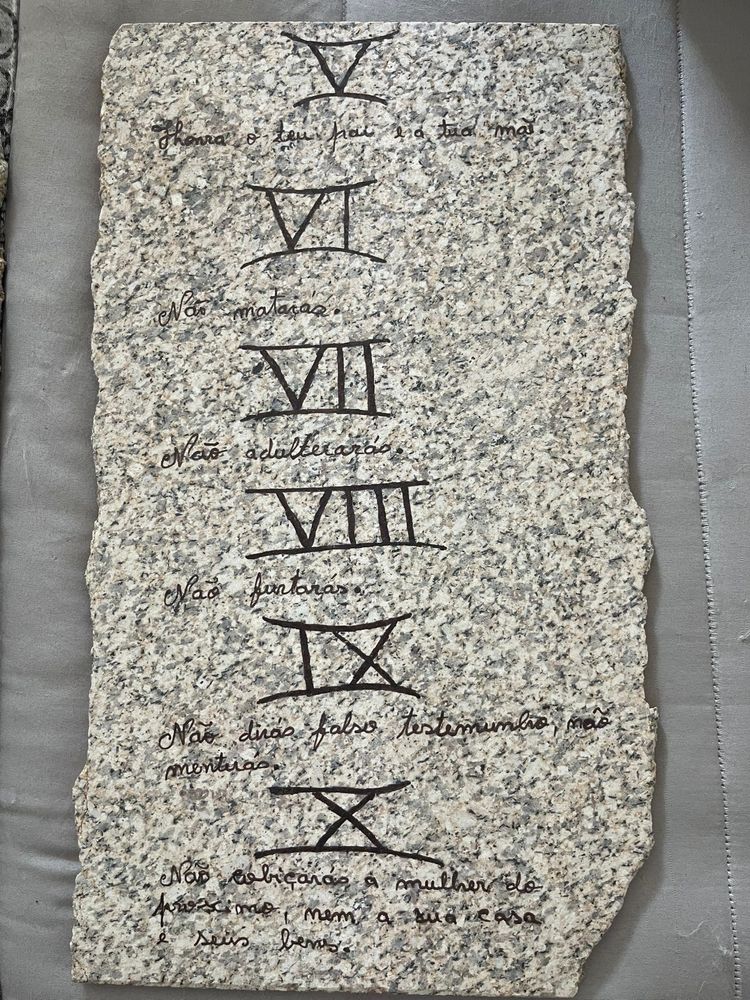 V
Honra o teu pai e a tua mãe
VI
Não matarás.
VII
Não adulterarás.
VIII
Não furtarás.
IX
Não dirás falso testemunho, não
mentirás.
X
Não cobiçarás a mulher do
próximo, nem a sua casa
e seus bens.